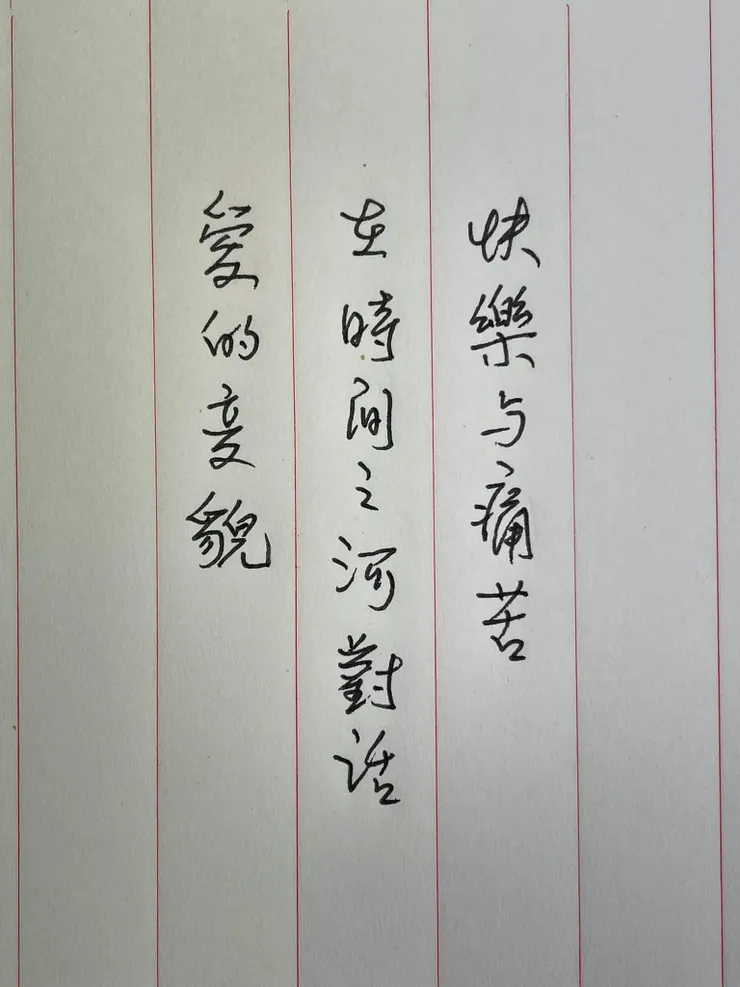 快樂与痛苦
在時间之河對话
愛的变貌